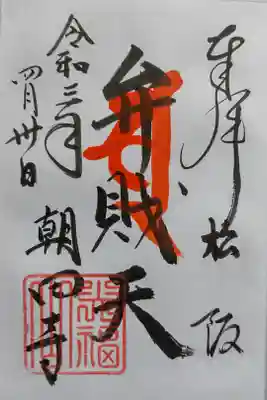 奉拝 松阪
弁財天
朝田寺
令和三年
四月卅日